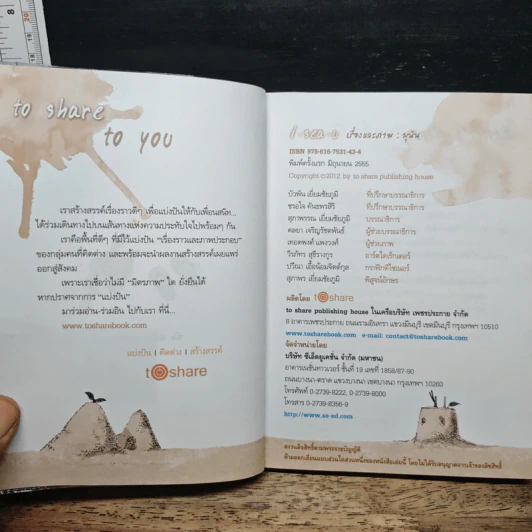 to share
to you
เราสร้างสรรค์เรื่องราวดีๆ เพื่อแบ่งปันให้กับเพื่อนสนิท...
ได้ร่วมเดินทางไปบนเส้นทางแห่งความประทับใจไปพร้อมๆ กัน
เราคือพื้นที่ดีๆ ที่มีไว้แบ่งปัน "เรื่องราวและภาพประกอบ"
ของกลุ่มคนที่คิดต่าง และพร้อมจะนำผลงานสร้างสรรค์เผยแพร่
ออกสู่สังคม
เพราะเราเชื่อว่าไม่มี "มิตรภาพ" ใด ยั่งยืนได้
หากปราศจากการ "แบ่งปัน"
มาร่วมอ่าน-ร่วมอิน ไปกับเรา ที่นี่...
www.tosharebook.com
แบ่งปัน | คิดต่าง | สร้างสรรค์
to share
เรื่องและภาพ : มุนิน
ISBN 978-616-7531-43-4
พิมพ์ครั้งแรก มิถุนายน 2555
Copyright ©2012 by to share publishing house
บัวพัน เอี่ยมชัยภูมิ ที่ปรึกษาบรรณาธิการ
ชรอใจ ที่ปรึกษาบรรณาธิการ
สุภาพรรณ เอี่ยมชัยภูมิ บรรณาธิการ
ดลยา เจริญรัชตพันธ์ ผู้ช่วยบรรณาธิการ
เทอดพงศ์ แพงวงศ์ ผู้ช่วยภาพ
วีรภัทร สุธีรางกูร อาร์ตไดเร็กเตอร์
ปวีณา เอื้อน้อมจิตต์กุล กราฟิกดีไซเนอร์
สุภาพร เอี่ยมชัยภูมิ พิสูจน์อักษร
ผลิตโดย to share
to share publishing house ในเครือบริษัท เพชรประกาย จำกัด
8 อาคารเพชรประกาย ถนนรามอินทรา แขวงมีนบุรี เขตมีนบุรี กรุงเทพฯ 10510
www.tosharebook.com e-mail: contact@tosharebook.com
จัดจำหน่ายโดย
บริษัท ซีเอ็ดยูเคชั่น จำกัด (มหาชน)
อาคารเนชั่นทาวเวอร์ ชั้นที่ 19 เลขที่ 1858/87-90
ถนนบางนา-ตราด แขวงบางนา เขตบางนา กรุงเทพฯ 10260
โทรศัพท์ 0-2739-8222, 0-2739-8000
โทรสาร 0-2739-8356-9
http://www.se-ed.com
สงวนลิขสิทธิ์ตามพระราชบัญญัติ
ห้ามลอกเลียนแบบส่วนใดส่วนหนึ่งของหนังสือเล่มนี้ โดยไม่ได้รับอนุญาตจากเจ้าของลิขสิทธิ์